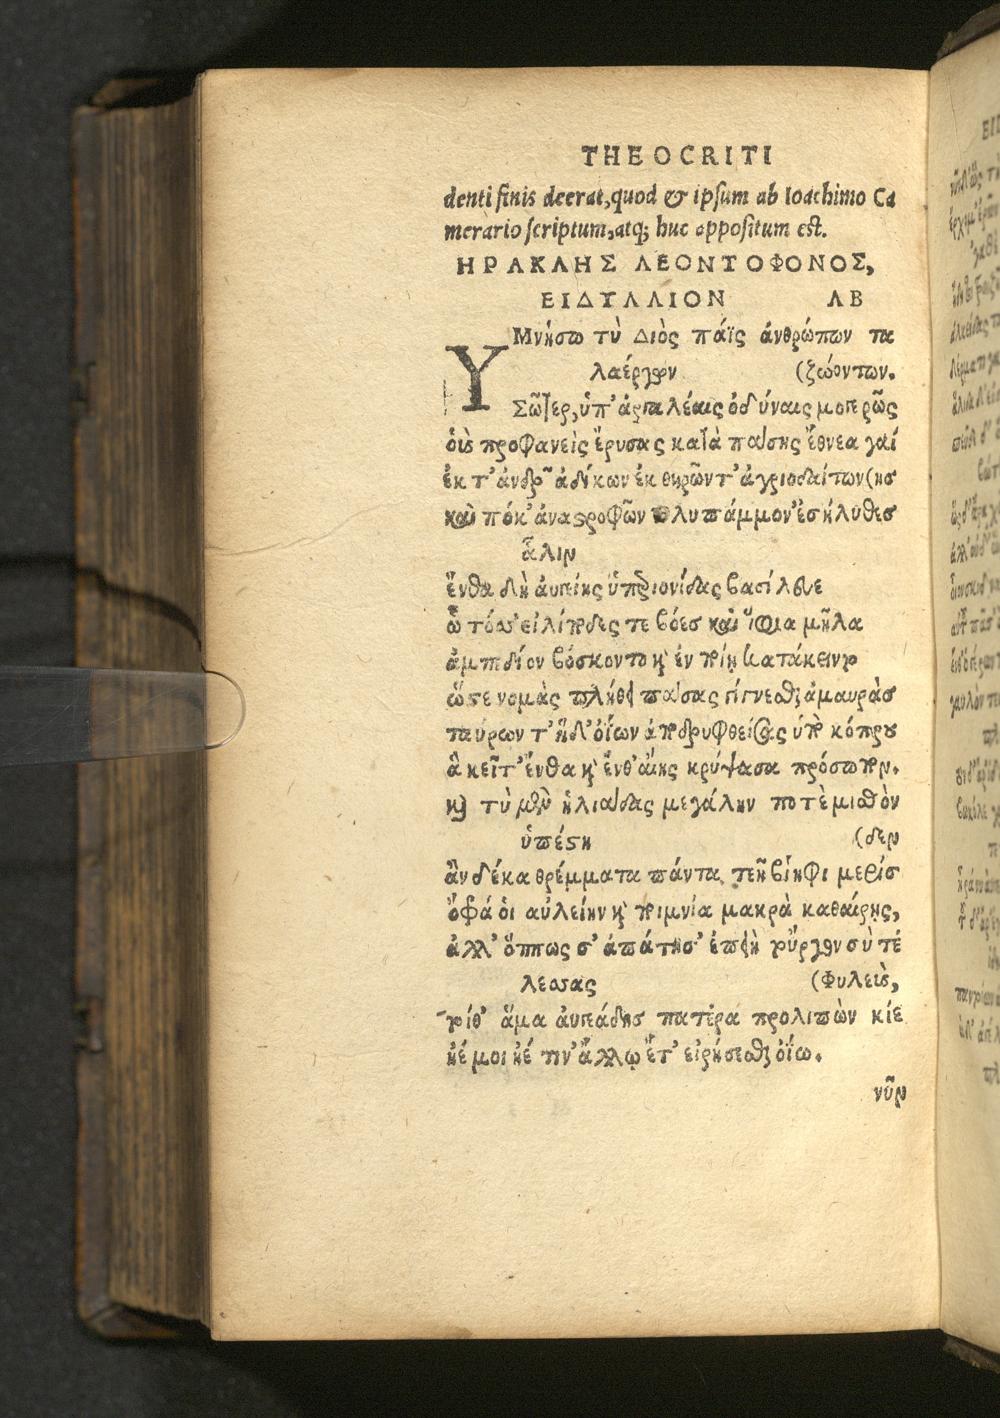 THEOCRITI
denti finis deerat, quod & ipsum ab Ioachimo Ca
merario scriptum, atq; huc appositum est.
ΗΡΑΚΛΗΣ ΛΕΟΝΤΟΦΟΝΟΣ,
ΕΙΔΥΛΛΙΟΝ ΛΒ
ΥΜνήσω τὺ Διὸς πάϊς ἀνθρώπων τα
λαέργων (ζωόντων.
Σῶτερ, ὑπ' ἀργαλέαις ὀδύναις μογερῶς
οὓς προφανεὶς ἔρυσας κατὰ πάσης ἔθνεα γαί
ἐκ τ' ἀνδρῶν ἀδίκων ἐκ θηρῶν τ' ἀγριοδαίτων (ης
καὶ πόκ' ἀναστροφῶν πολυπάμμον' ἐσήλυθες
ἄλιν
ἔνθα δὴ αὐγείης ὑπεριονίδας βασίλευε
ᾧ τόσα εἰλίποδες τε βόες καὶ ἴφια μῆλα
ἀμπεδίον βόσκοντο κὴν
ὥστε νομὰς πλήθει πάσας γίγνεσθαι ἀμαυρὰς
ταύρων τ' ἠδ' ὀΐων ἀποκρυφθείσας ὑπὸ κόπρου
ἃ κεῖτ' ἔνθα καὶ ἔνθ' αἴης κρύψασα πρόσωπον.
καὶ τὺ μὲν ἡλιάδας μεγάλην ποτὲ μισθὸν
ὑπέστη (δεν
ἂν δέκα θρέμματα πάντα τεῆ βίηφι μεθίσ
ὄφρά οἱ αὐλείην καὶ ποιμνία μακρὰ καθαίρῃς,
ἀλλ' ὅππως σ' ἀπάτησ' ἐπειδὴ ἔργον σὺ τέ
λεσσας (Φυλεὺς,
τοίθ' ἅμα αὐγεάδης πατέρα προλιπὼν κίε
ἠέ μοι ἠέ τιν' ἄλλῳ ἔτ' εἰρήσεσθαι ὀΐω.
νῦν